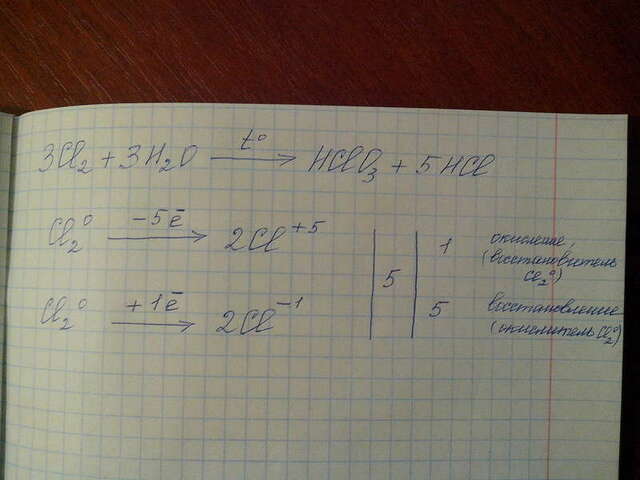 3Cl₂ + 3H₂O —t°→ HClO₃ + 5HCl
Cl₂⁰ —-5ē→ 2Cl⁺⁵ | | 1 окисление,
(восстановитель
Cl₂⁰)
5
Cl₂⁰ —+1ē→ 2Cl⁻¹ | | 5 восстановление
(окислитель Cl₂⁰)